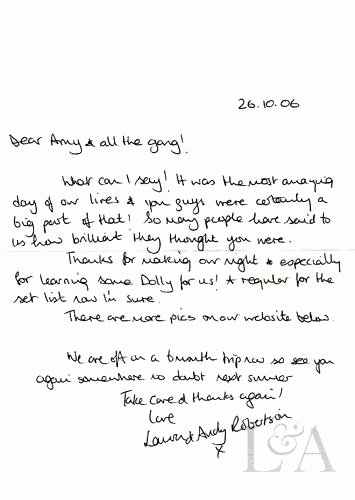 26.10.06
Dear Amy & all the gang!
What can I say! It was the most amazing
day of our lives & you guys were certainly a
big part of that! So many people have said to
us how brilliant they thought you were.
Thanks for making our night & especially
for learning some Dolly for us! A regular for the
set list now I'm sure.
There are more pics on our website below.
We are off on a 6 month trip now so see you
again somewhere no doubt next summer
Take care & thanks again!
Love
Laura & Andy Robertson
x
L&A